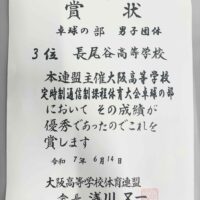 賞状
卓球の部 男子団体
3位 長尾谷高等学校
本連盟主催大阪高等学校
定時制通信制課程体育大会卓球の部
において その成績が
優秀であったのでこれを
賞します
令和 7年 6月14日
大阪高等学校体育連盟
会長 浅川 又一